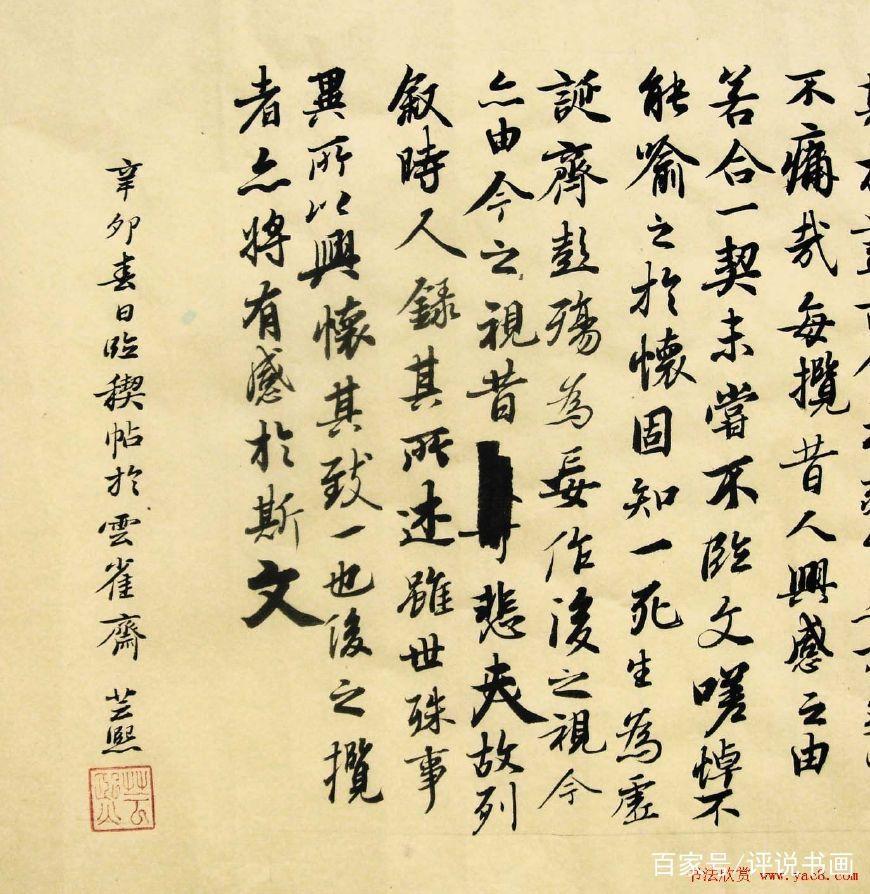 不痛哉每攬昔人興感之由
若合一契未嘗不臨文嗟悼不
能喻之於懷固知一死生為虛
誕齊彭殤為妄作後之視今
亦由今之視昔悲夫故列
叙時人錄其所述雖世殊事
異所以興懷其致一也後之攬
者亦將有感於斯文
辛卯春日臨稧帖於雲雀齋 芸熙
芸熙
百家号/评说书画
书法欣赏 www.yac8.com